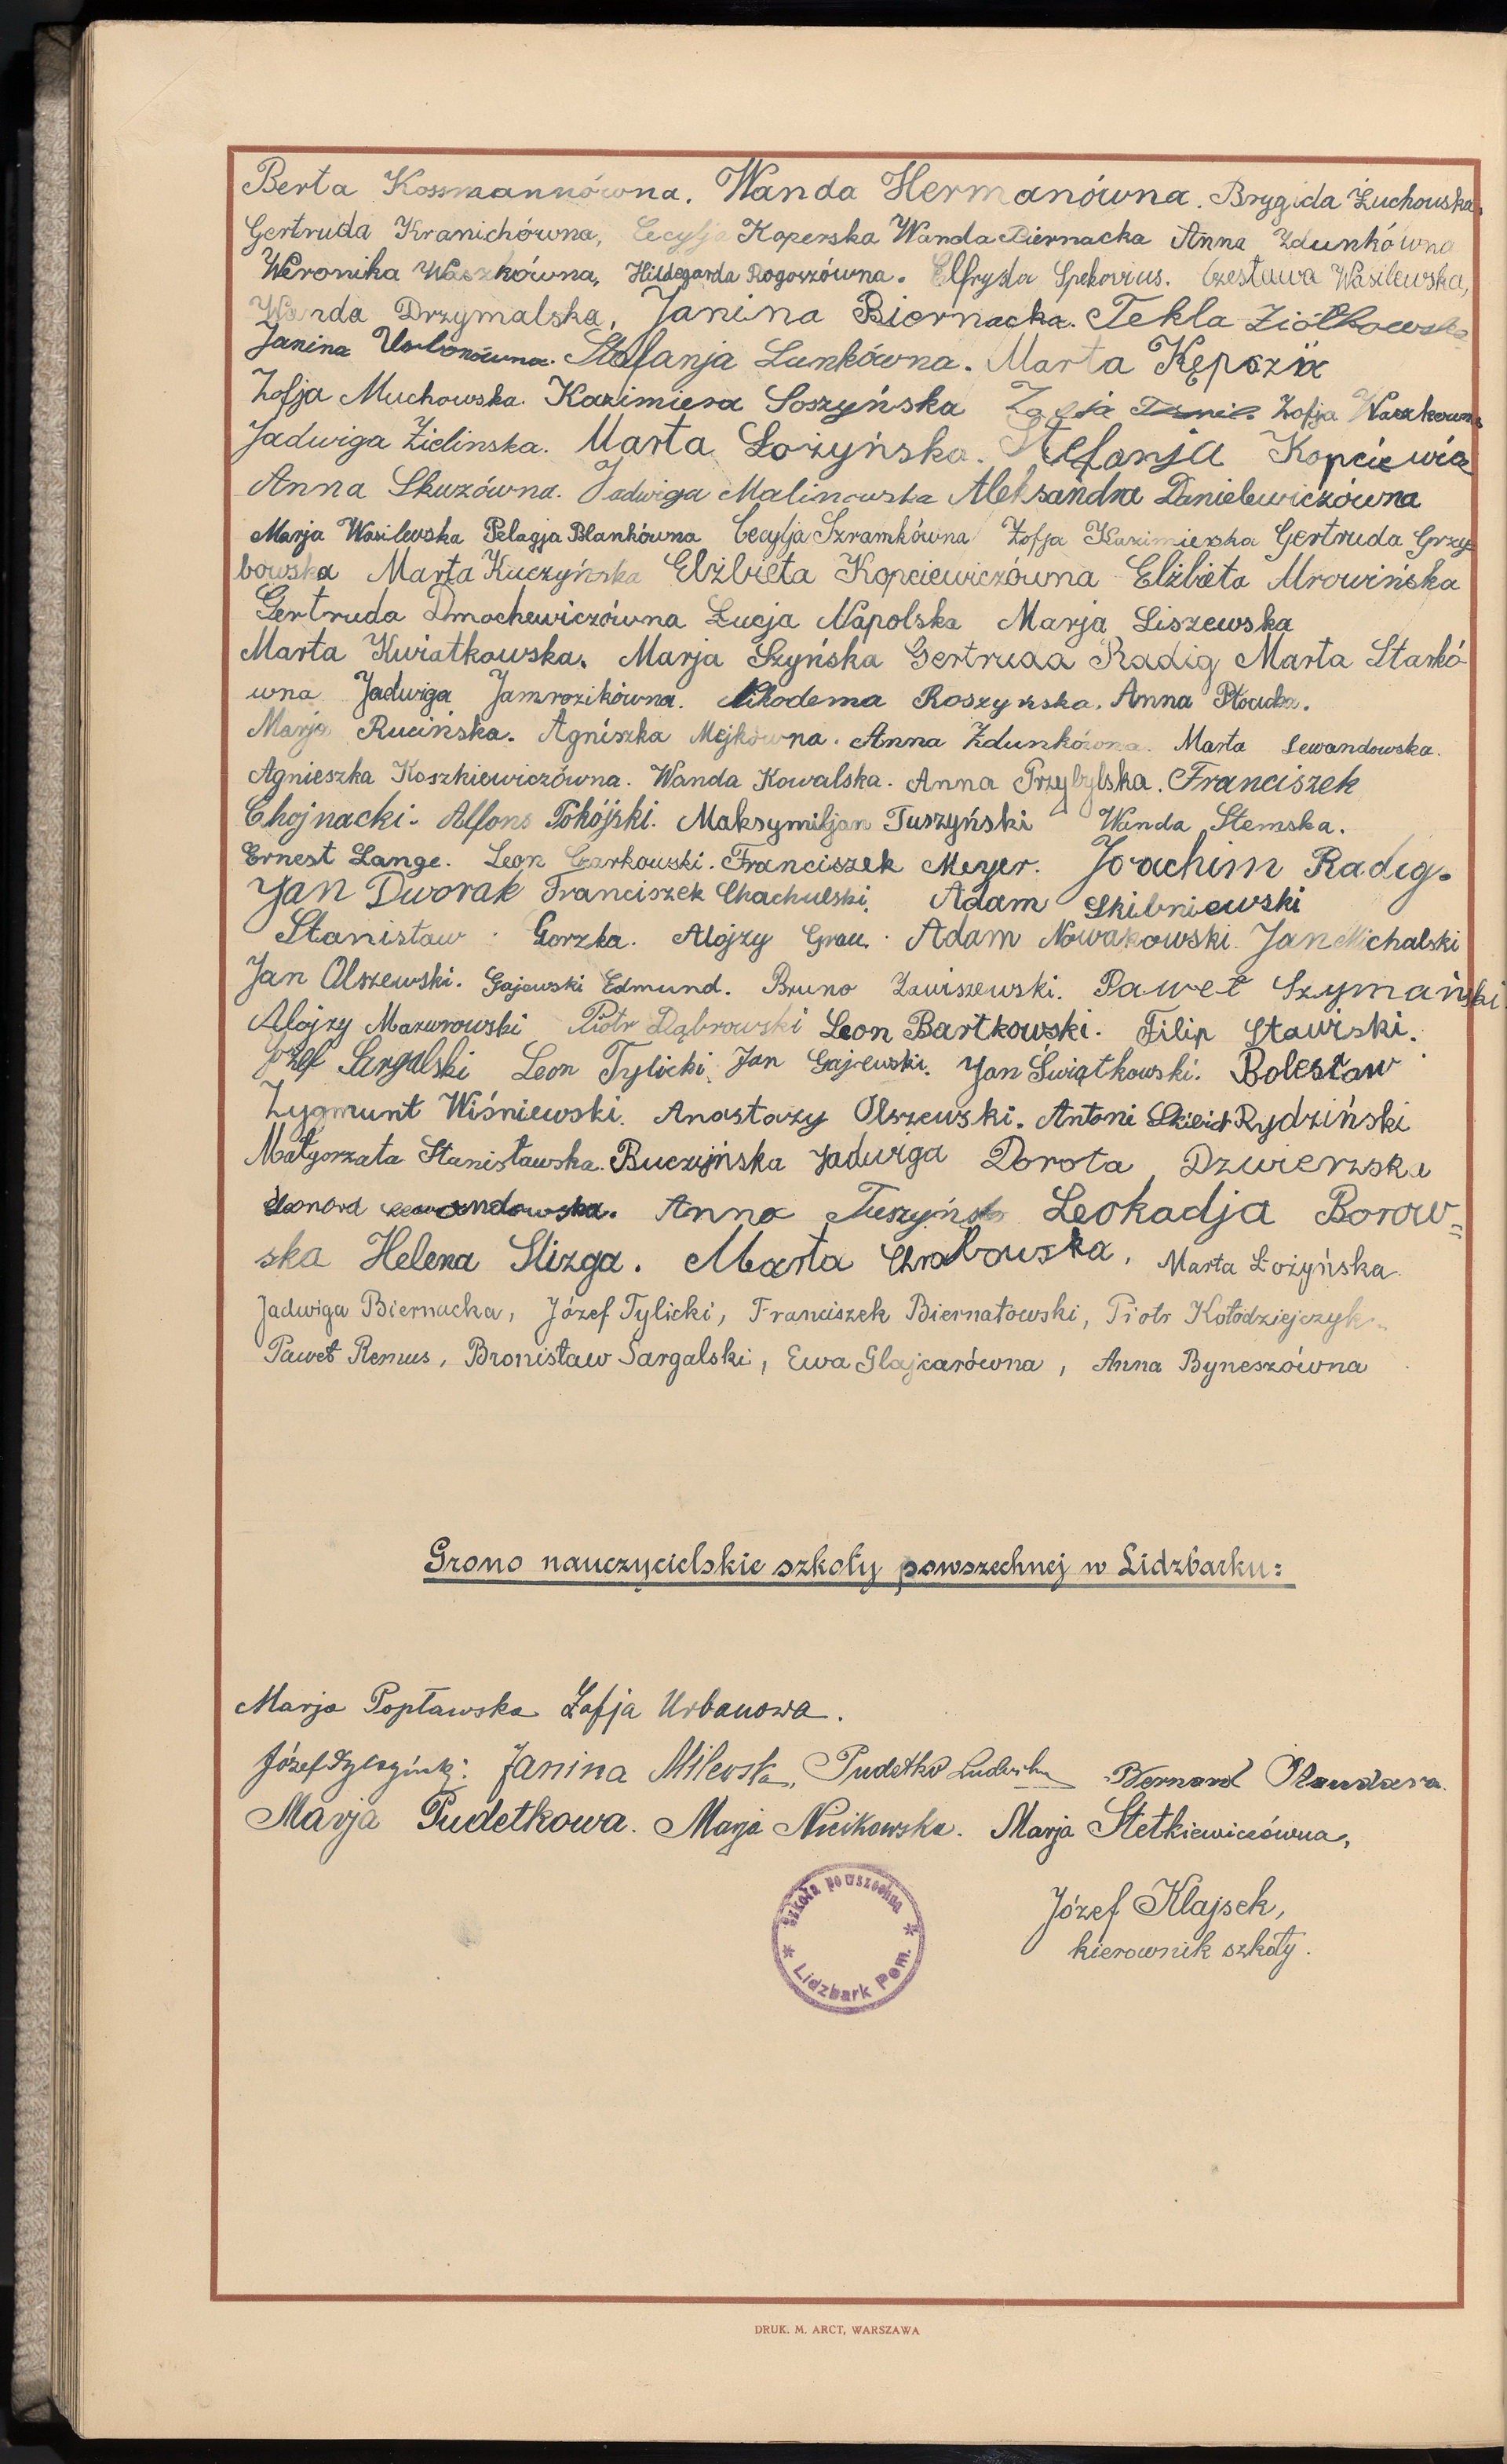 Berta Kossmannówna. Wanda Hermanówna. Brygida Żuchowska,
Gertruda Kranichówna, Cecylja Koperska Wanda Biernacka Anna Zdunkówna
Weronika Waszkówna, Hildegarda Rogoszówna. Elfryda Spekovius. Czesława Wasilewska,
Wanda Drzymalska, Janina Biernacka. Tekla Ziółkowska
Janina Urbanówna. Stefanja Lunkówna. Marta Kępszix
Zofja Muchowska. Kazimiera Soszyńska Zofja Zofja Waszkowna
Jadwiga Zielinska. Marta Łożyńska. Stefanja Kopciewicz
Anna Skuzówna. Jadwiga Malinowska Aleksandra Danielewiczówna
Marja Wasilewska Pelagja Blankówna Cecylja Szramkówna Zofja Kazimierska Gertruda Grzy-
bowska Marta Kuczyńska Elżbieta Kopciewiczówna Elżbieta Mrowińska
Gertruda Dmochewiczówna Łucja Napolska Marja Liszewska
Marta Kwiatkowska. Marja Szyńska Gertruda Radig Marta Starkó-
wna Jadwiga Jamrozikówna. Nikodema Roszyńska. Anna Płocka.
Marja Rucińska. Agniszka Mejkówna. Anna Zdunkówna. Marta Lewandowska.
Agnieszka Koszkiewiczówna. Wanda Kowalska. Anna Przybylska. Franciszek
Chojnacki. Alfons Pokójski. Maksymiljan Tuszyński Wanda Stemska.
Ernest Lange. Leon Czarkowski. Franciszek Meyer. Joachim Radig.
Jan Dworak Franciszek Chachulski. Adam Skibniewski
Stanisław Gorzka. Alojzy Grau. Adam Nowakowski. Jan Michalski
Jan Olszewski. Gajewski Edmund. Bruno Zawiszewski. Paweł Szymański
Alojzy Mazurowski Piotr Dąbrowski Leon Bartkowski. Filip Stawiski.
Józef Sargalski Leon Tylicki. Jan Gajewski. Jan Świątkowski. Bolesław
Zygmunt Wiśniewski. Anastazy Olszewski. Antoni Rydziński
Małgorzata Stanisławska. Buczyńska Jadwiga Dorota Dzwierzska
Leonard Lewandowska. Anna Tuszyńska Leokadja Borow=
ska Helena Slizga. Marta Chrabowska, Marta Łożyńska.
Jadwiga Biernacka, Józef Tylicki, Franciszek Biernatowski, Piotr Kołodziejczyk.
Paweł Remus, Bronisław Sargalski, Ewa Glajcarówna, Anna Byneszówna
Grono nauczycielskie szkoły powszechnej w Lidzbarku:
Marja Popławska Zofja Urbanowa.
Józef Janina Milewska, Pudełko Ludwika Bernard
Marja Pudełkowa. Marja Nicikowska. Marja Stetkiewiczówna,
Józef Klajsek,
kierownik szkoły.
Szkoła powszechna
* Lidzbark Pom. *
DRUK. M. ARCT, WARSZAWA